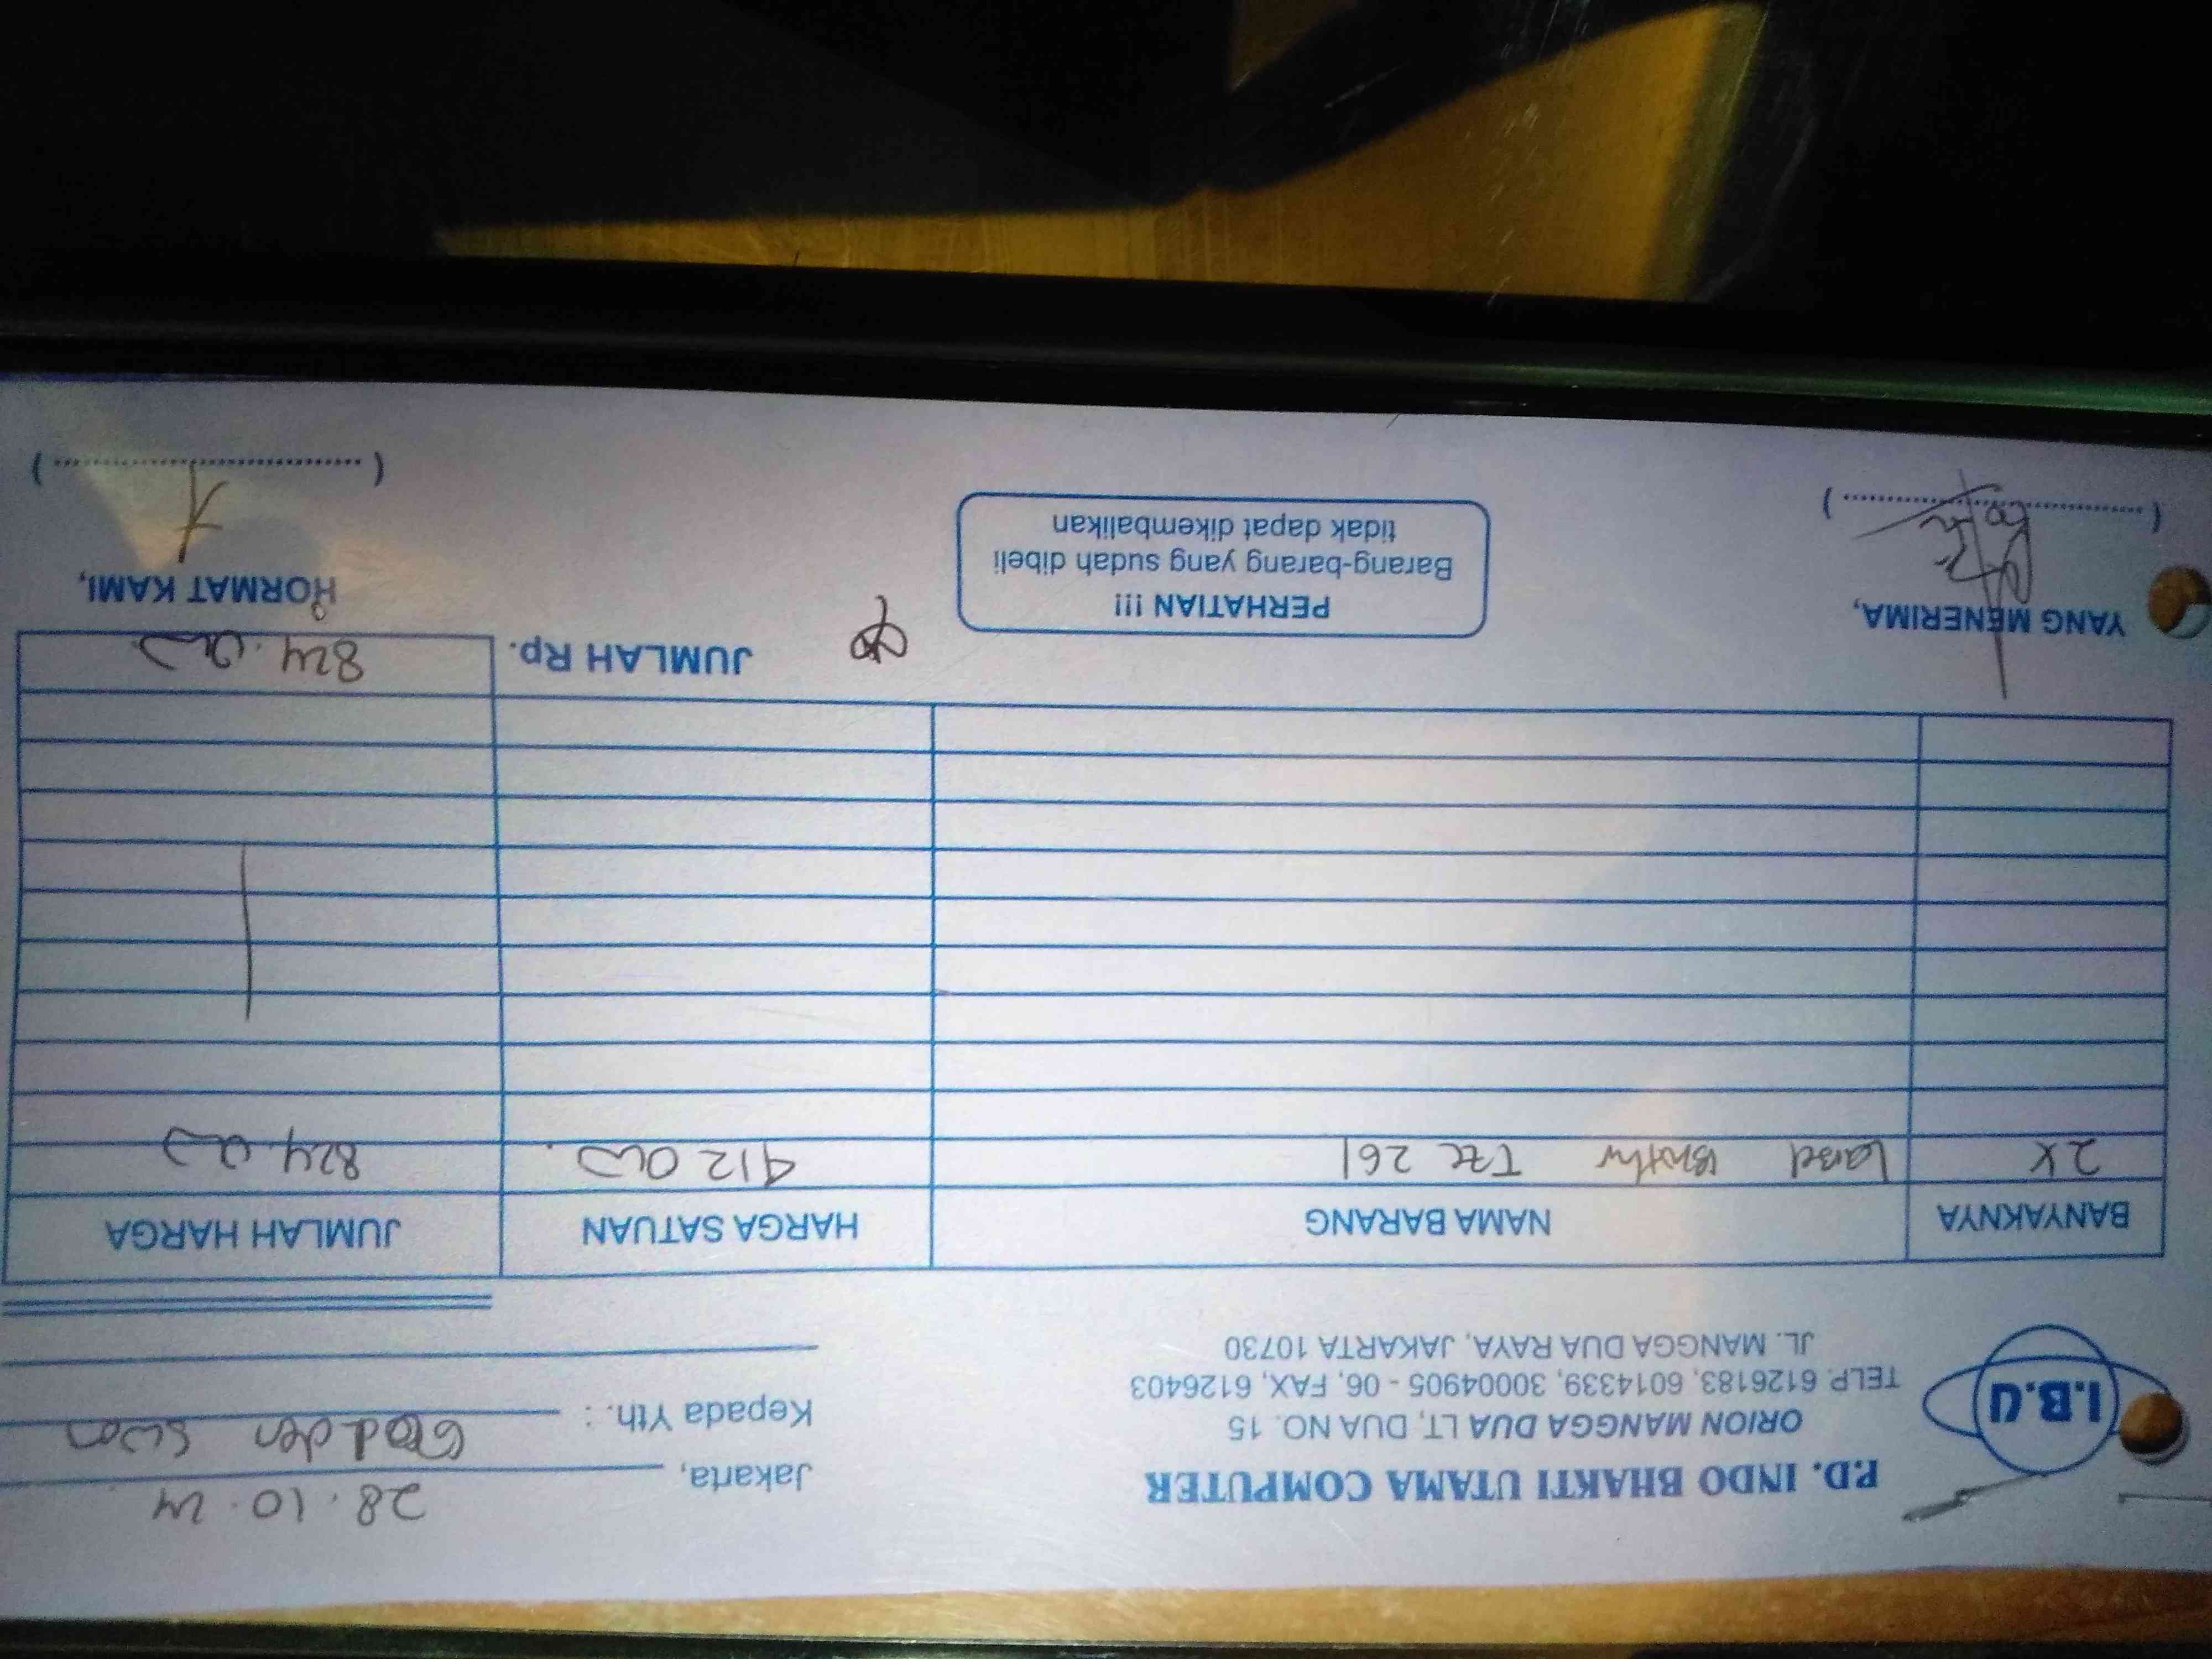 P.D. INDO BHAKTI UTAMA COMPUTER
ORION MANGGA DUA LT, DUA NO. 15
TELP. 6126183, 6014339, 30004905 - 06, FAX, 6126403
JL. MANGGA DUA RAYA, JAKARTA 10730
I.B.U
Jakarta, 28.10.24
Kepada Yth. :
BANYAKNYA NAMA BARANG HARGA SATUAN JUMLAH HARGA
2x Label Brother Tze 261 412 000 824.000
JUMLAH Rp. 824.000
YANG MENERIMA,
PERHATIAN !!!
Barang-barang yang sudah dibeli
tidak dapat dikembalikan
HORMAT KAMI,